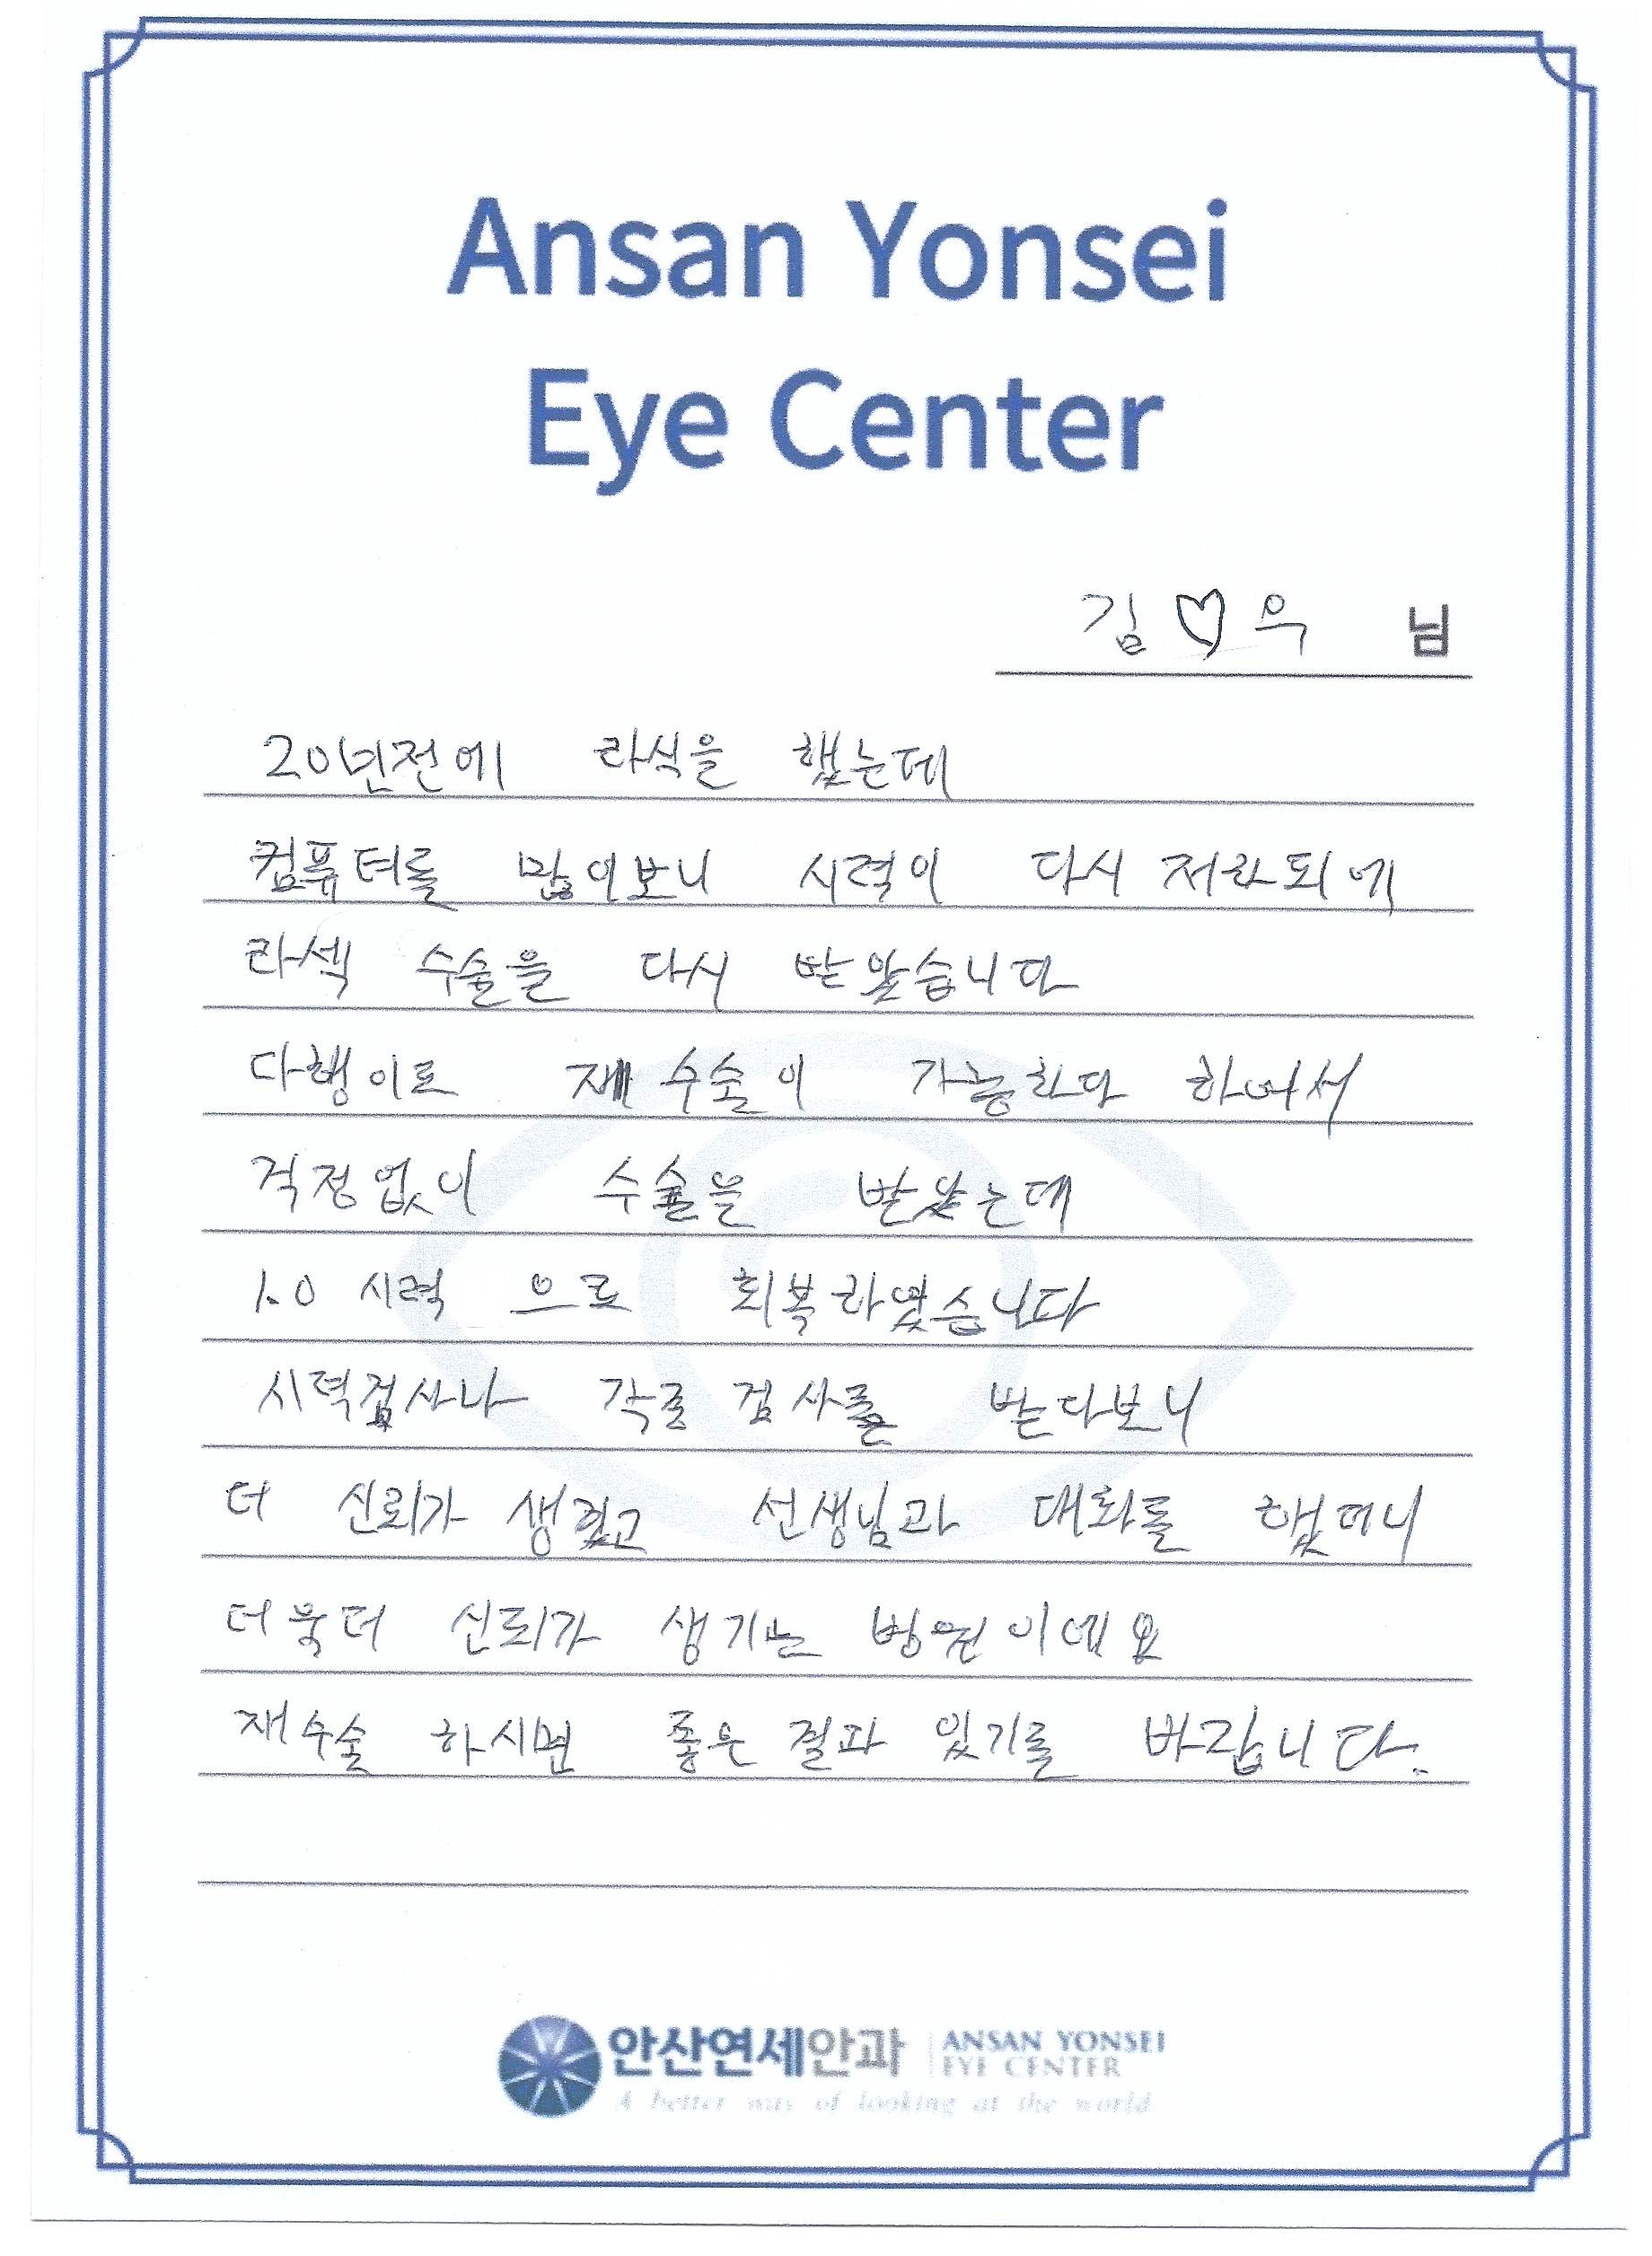 Ansan Yonsei
Eye Center
김♡욱 님
20년전에 라식을 했는데
컴퓨터를 많이보니 시력이 다시 저하되에
라섹 수술을 다시 받았습니다
다행이로 재수술이 가능하다 하여서
걱정없이 수술을 받았는데
1.0 시력 으로 회복하였습니다
시력검사나 각종 검사를 받다보니
더 신뢰가 생겼고 선생님과 대화를 했더니
더욱더 신뢰가 생기는 병원이에요
재수술 하시면 좋은 결과 있기를 바랍니다.
안산연세안과 ANSAN YONSEI
EYE CENTER
A better way of looking at the world